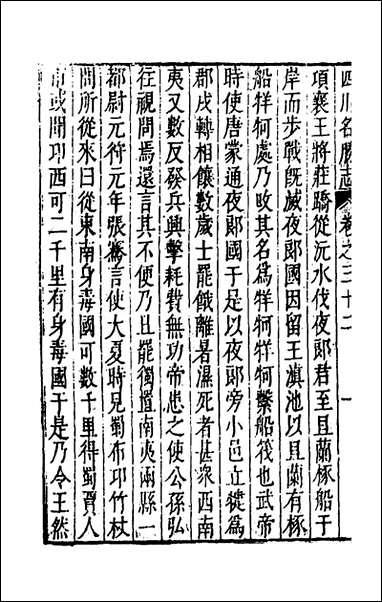 四川名勝志 卷之三十二 一
頃襄王將莊蹻從沅水伐夜郎君至且蘭椓船于
岸而步戰既滅夜郎國因留王滇池以且蘭有椓
船牂牁處乃改其名爲牂牁牂牁繫船筏也武帝
時使唐蒙通夜郎國于是以夜郎旁小邑立犍爲
郡戌轉相饟數歲士罷餓離暑濕死者甚衆西南
夷又數反發兵興擊耗費無功帝患之使公孫弘
往視問焉還言其不便乃且罷獨置南夷兩縣一
都尉元狩元年張騫言使大夏時見蜀布卭竹杖
問所從來曰從東南身毒國可數千里得蜀賈人
市或聞卭西可二千里有身毒國于是乃令王然